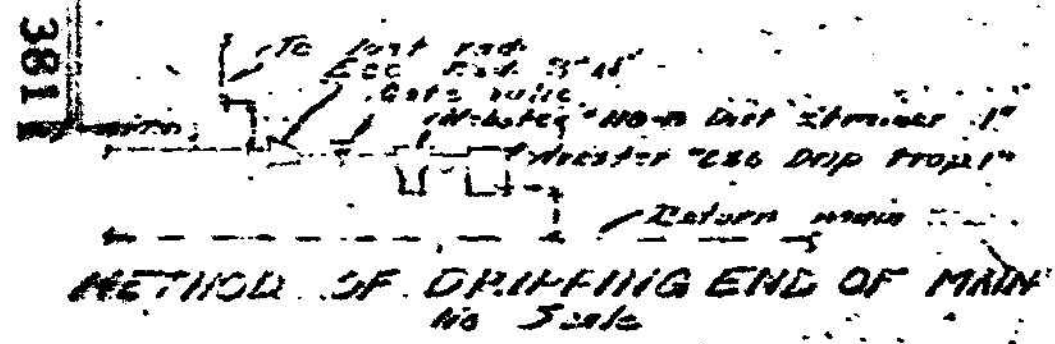 3811
To last rad
Ecc
Gate valve
Webster Dirt Strainer 1"
Webster Drip Trap 1"
Return main
METHOD OF DRIPPING END OF MAIN
No Scale